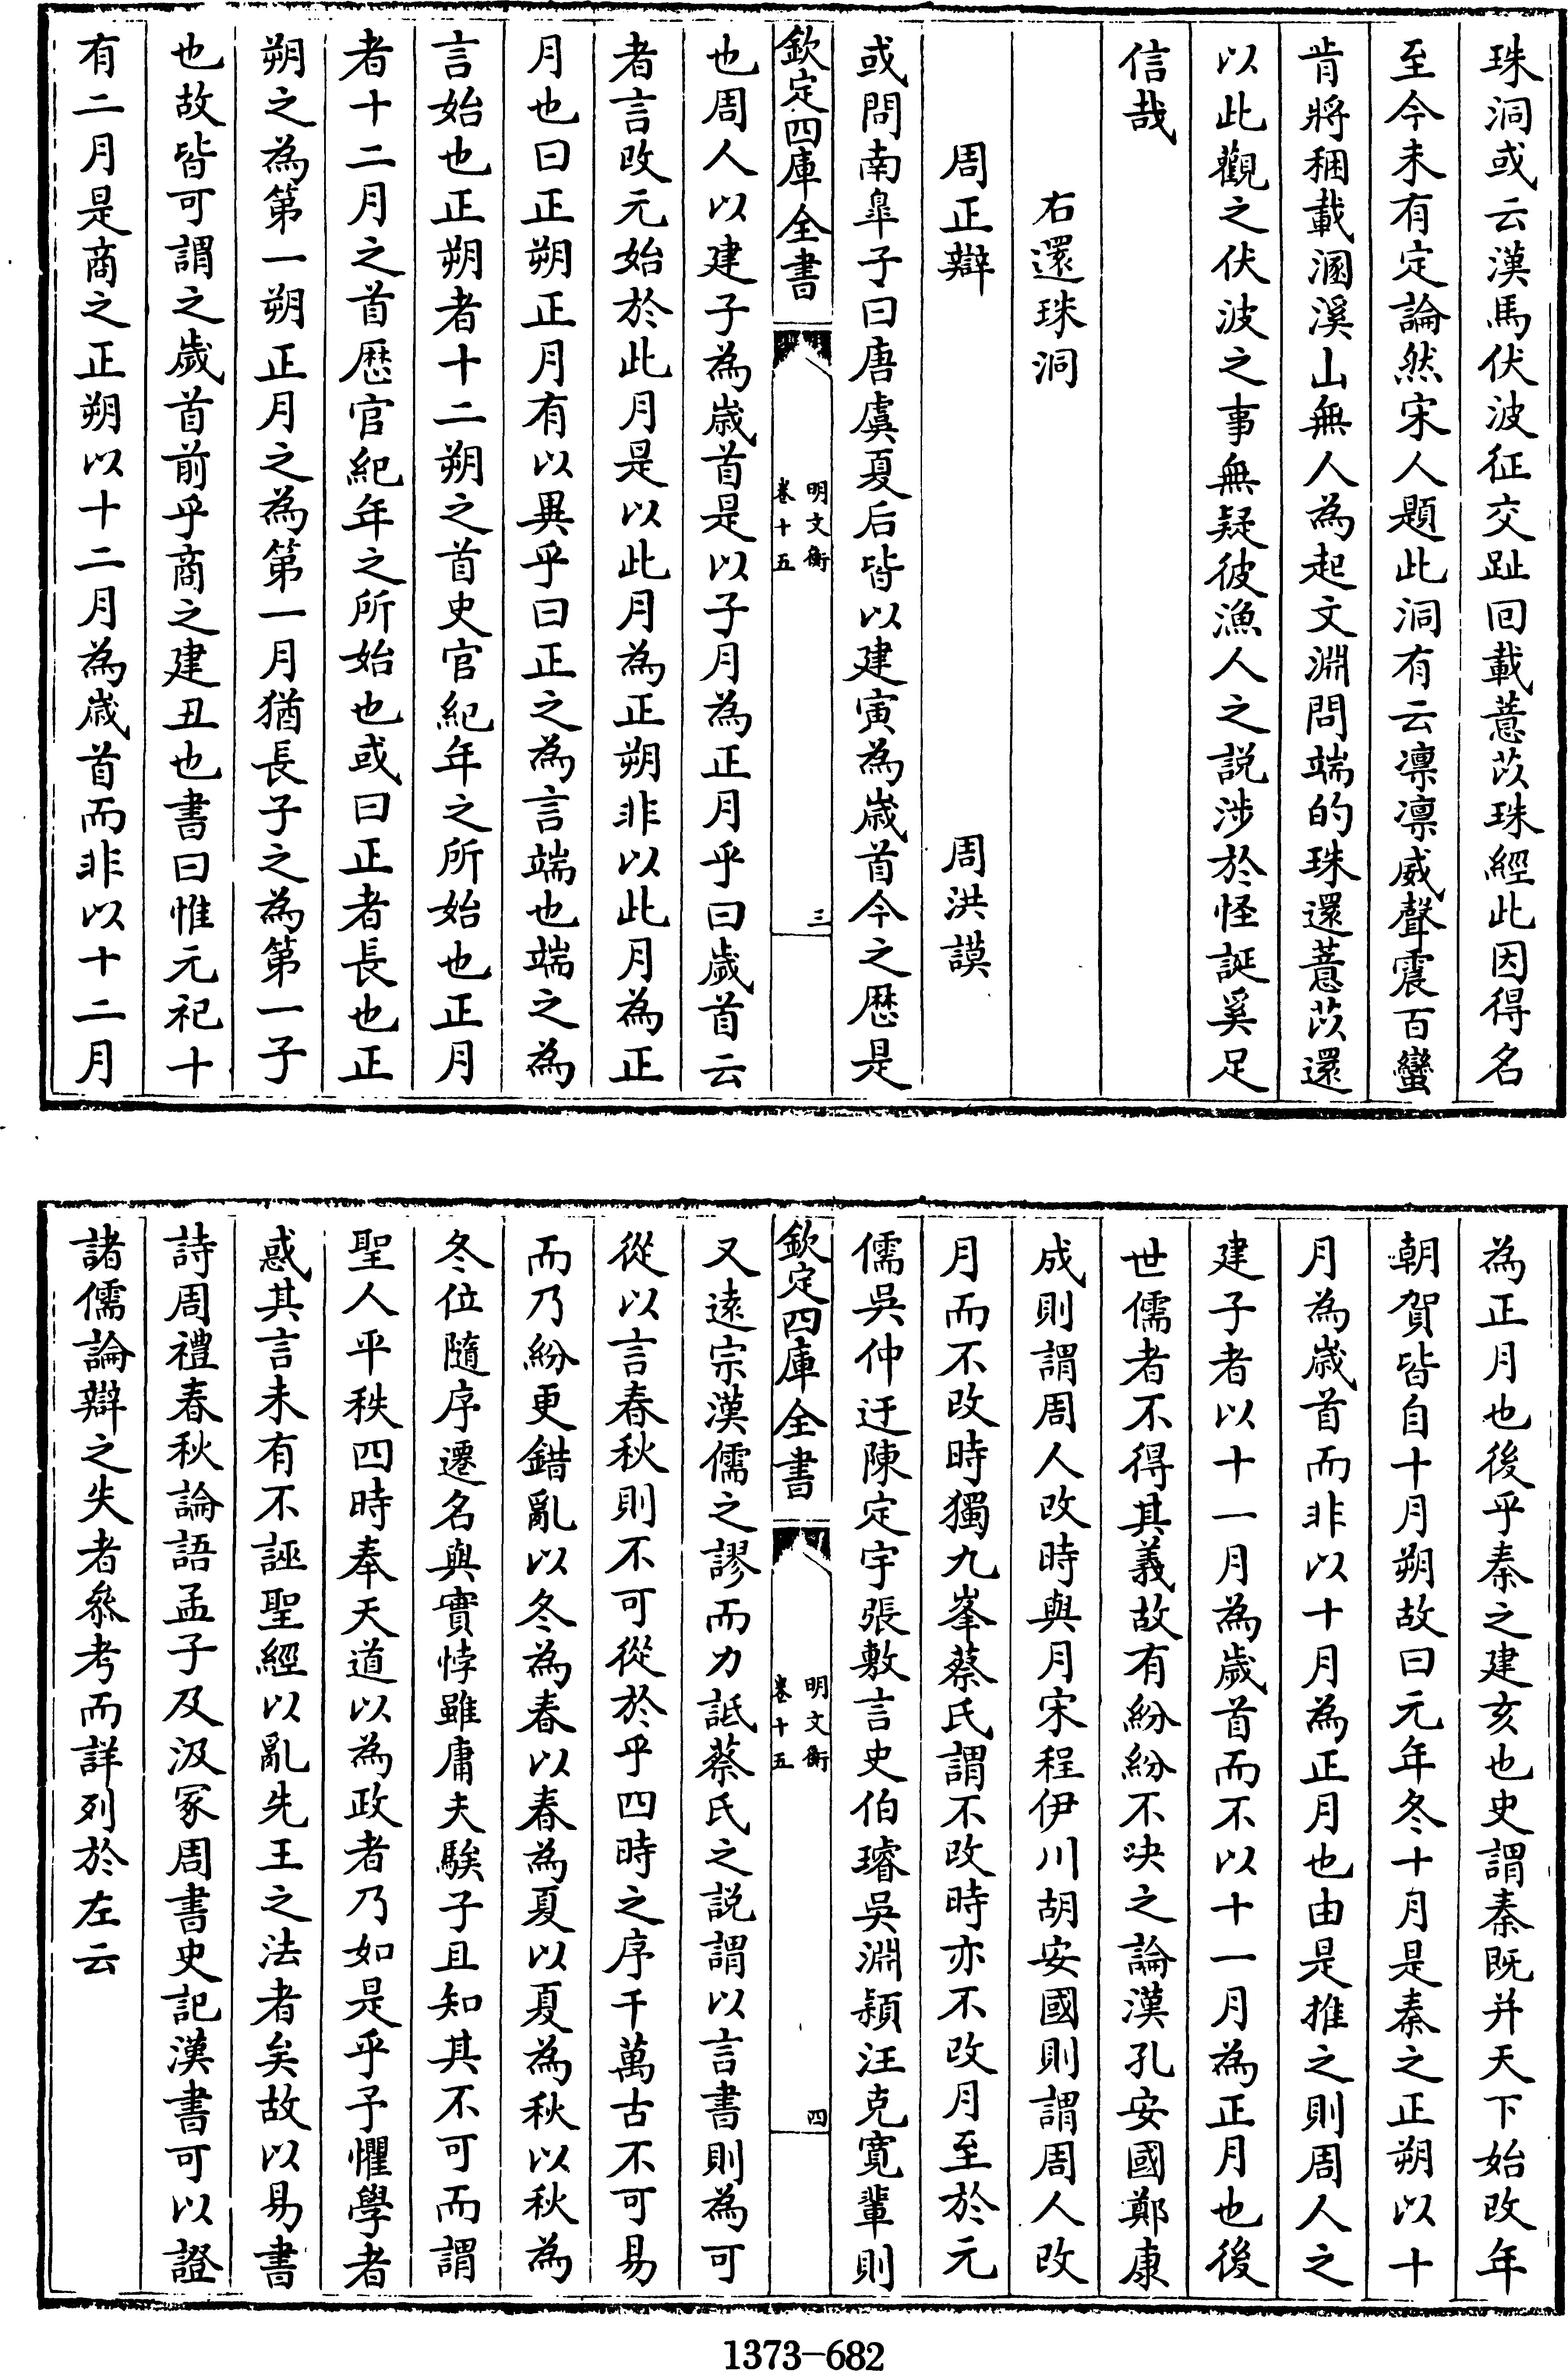 珠洞或云漢馬伏波征交趾回載薏苡珠經此因得名
至今未有定論然宋人題此洞有云凛凛威聲震百蠻
肯將稛載溷溪山無人為起文淵問端的珠還薏苡還
以此觀之伏波之事無疑彼漁人之説涉於怪誕奚足
信哉
右還珠洞
周正辯 周洪謨
或問南臯子曰唐虞夏后皆以建寅為歲首今之厯是
欽定四庫全書 明文衡 卷十五 三
也周人以建子為歲首是以子月為正月乎曰歲首云
者言改元始於此月是以此月為正朔非以此月為正
月也曰正朔正月有以異乎曰正之為言端也端之為
言始也正朔者十二朔之首史官紀年之所始也正月
者十二月之首厯官紀年之所始也或曰正者長也正
朔之為第一朔正月之為第一月猶長子之為第一子
也故皆可謂之歲首前乎商之建丑也書曰惟元祀十
有二月是商之正朔以十二月為歲首而非以十二月
為正月也後乎秦之建亥也史謂秦既并天下始改年
朝賀皆自十月朔故曰元年冬十月是秦之正朔以十
月為歲首而非以十月為正月也由是推之則周人之
建子者以十一月為歲首而不以十一月為正月也後
世儒者不得其義故有紛紛不决之論漢孔安國鄭康
成則謂周人改時與月宋程伊川胡安國則謂周人改
月而不改時獨九峯蔡氏謂不改時亦不改月至於元
儒吳仲迂陳定宇張敷言史伯璿吳淵穎汪克寬輩則
欽定四庫全書 明文衡 卷十五 四
又遠宗漢儒之謬而力詆蔡氏之説謂以言書則為可
從以言春秋則不可從於乎四時之序千萬古不可易
而乃紛更錯亂以冬為春以春為夏以夏為秋以秋為
冬位隨序遷名與實悖雖庸夫騃子且知其不可而謂
聖人平秩四時奉天道以為政者乃如是乎予懼學者
惑其言未有不誣聖經以亂先王之法者矣故以易書
詩周禮春秋論語孟子及汲冢周書史記漢書可以證
諸儒論辯之失者叅考而詳列於左云
1373-682